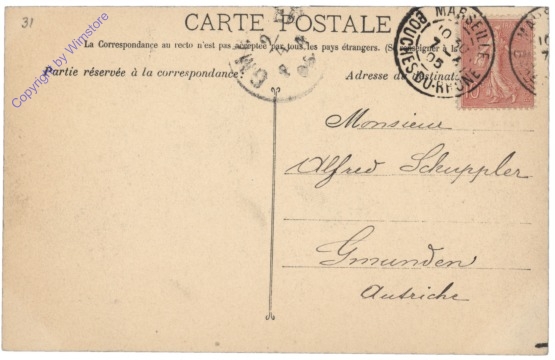 31
CARTE POSTALE
La Correspondance au recto n'est pas acceptée par tous les pays étrangers. (Se renseigner à la
Partie réservée à la correspondance
Adresse du destinataire
MARSEILLE
BOUCHES-DU-RHÔNE
05
Monsieur
Alfred Schuppler
Gmunden
Autriche
Copyright by Wimstore